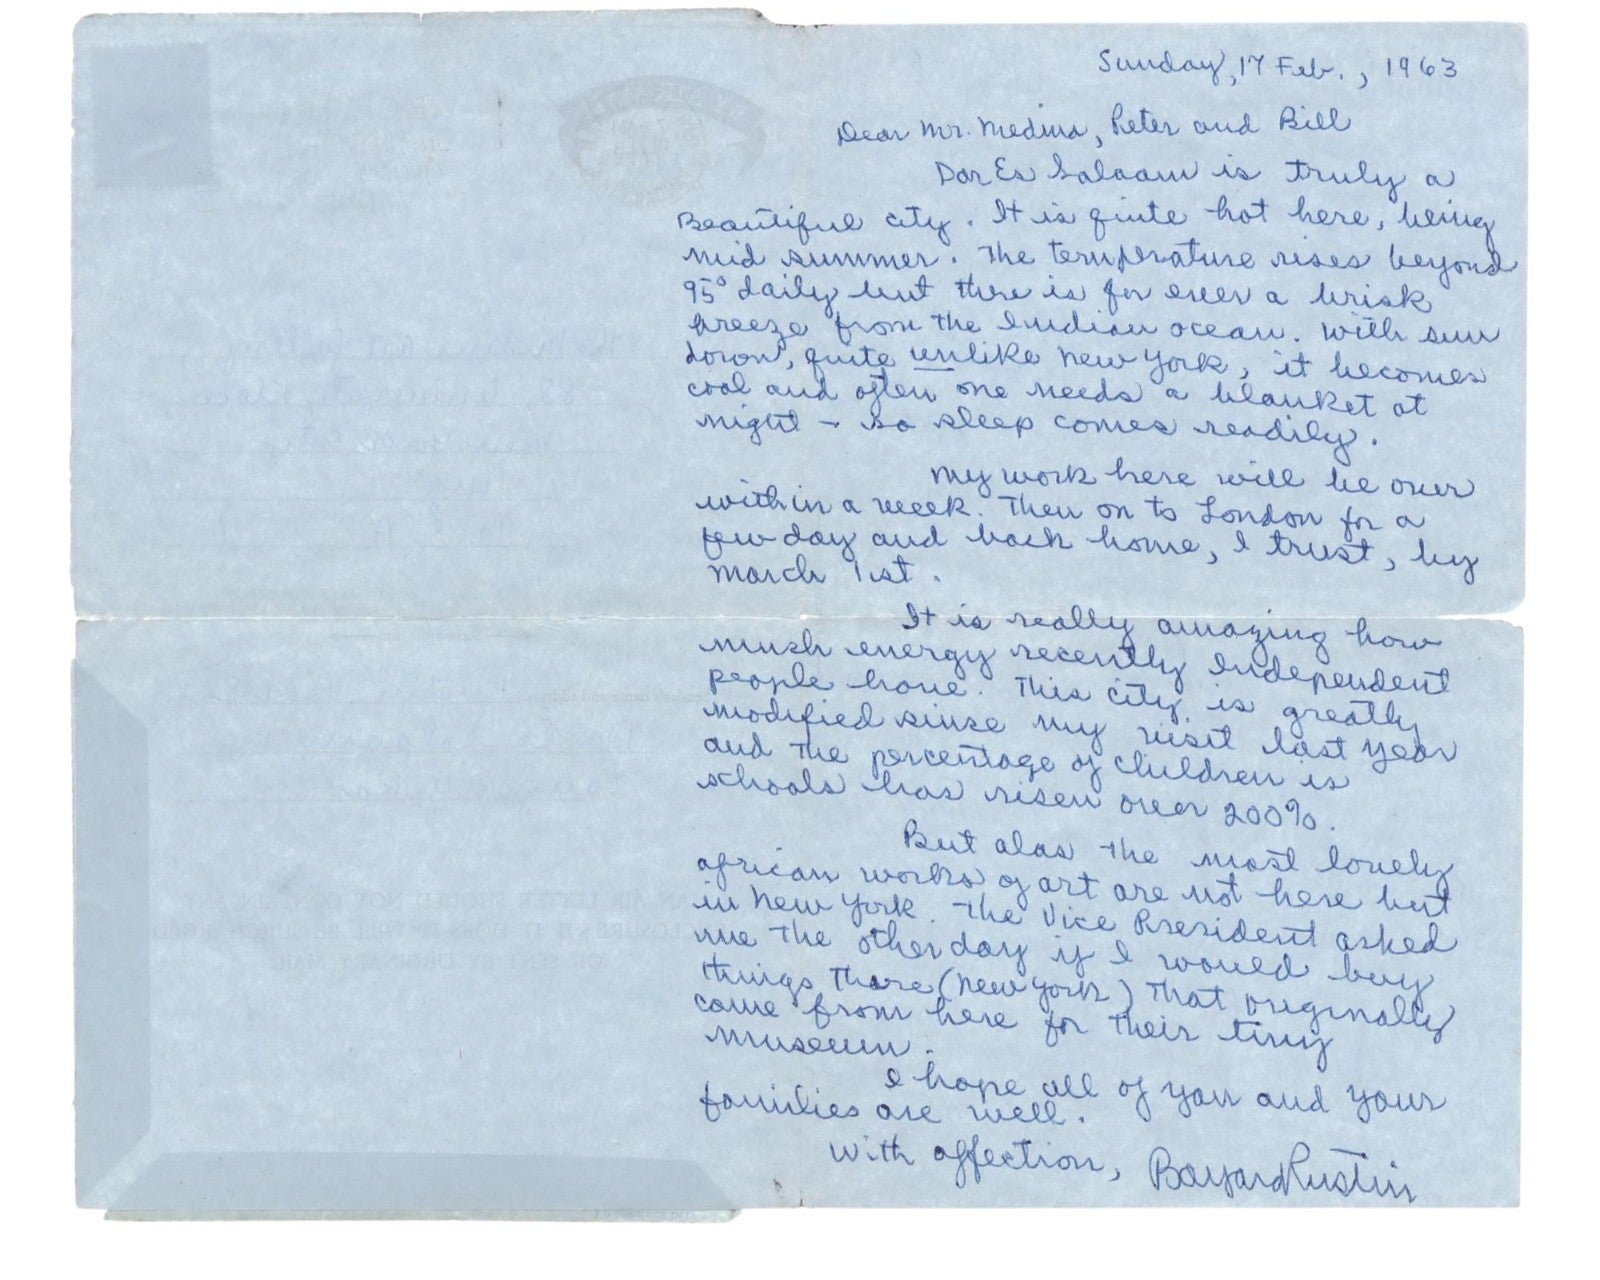 Sunday, 17 Feb., 1963
Dear Mr. Medina, Peter and Bill
Dar Es Salaam is truly a
Beautiful city. It is quite hot here, being
mid summer. The temperature rises beyond
95° daily but there is for ever a brisk
breeze from the Indian ocean. With sun
down, quite unlike New York, it becomes
cool and often one needs a blanket at
night – so sleep comes readily.
My work here will be over
within a week. Then on to London for a
few day and back home, I trust, by
March 1st.
It is really amazing how
much energy recently Independent
people have. This city is greatly
modified since my visit last year
and the percentage of children is
schools has risen over 200%.
But alas the most lovely
african works of art are not here but
in New York. The Vice President asked
me the other day if I would buy
things there (New York) that originally
came from here for their tiny
museum.
I hope all of you and your
families are well.
With affection, Bayard Rustin
AN AIR LETTER SHOULD NOT CONTAIN ANY
ENCLOSURE; IF IT DOES IT WILL BE SURCHARGED
OR SENT BY ORDINARY MAIL